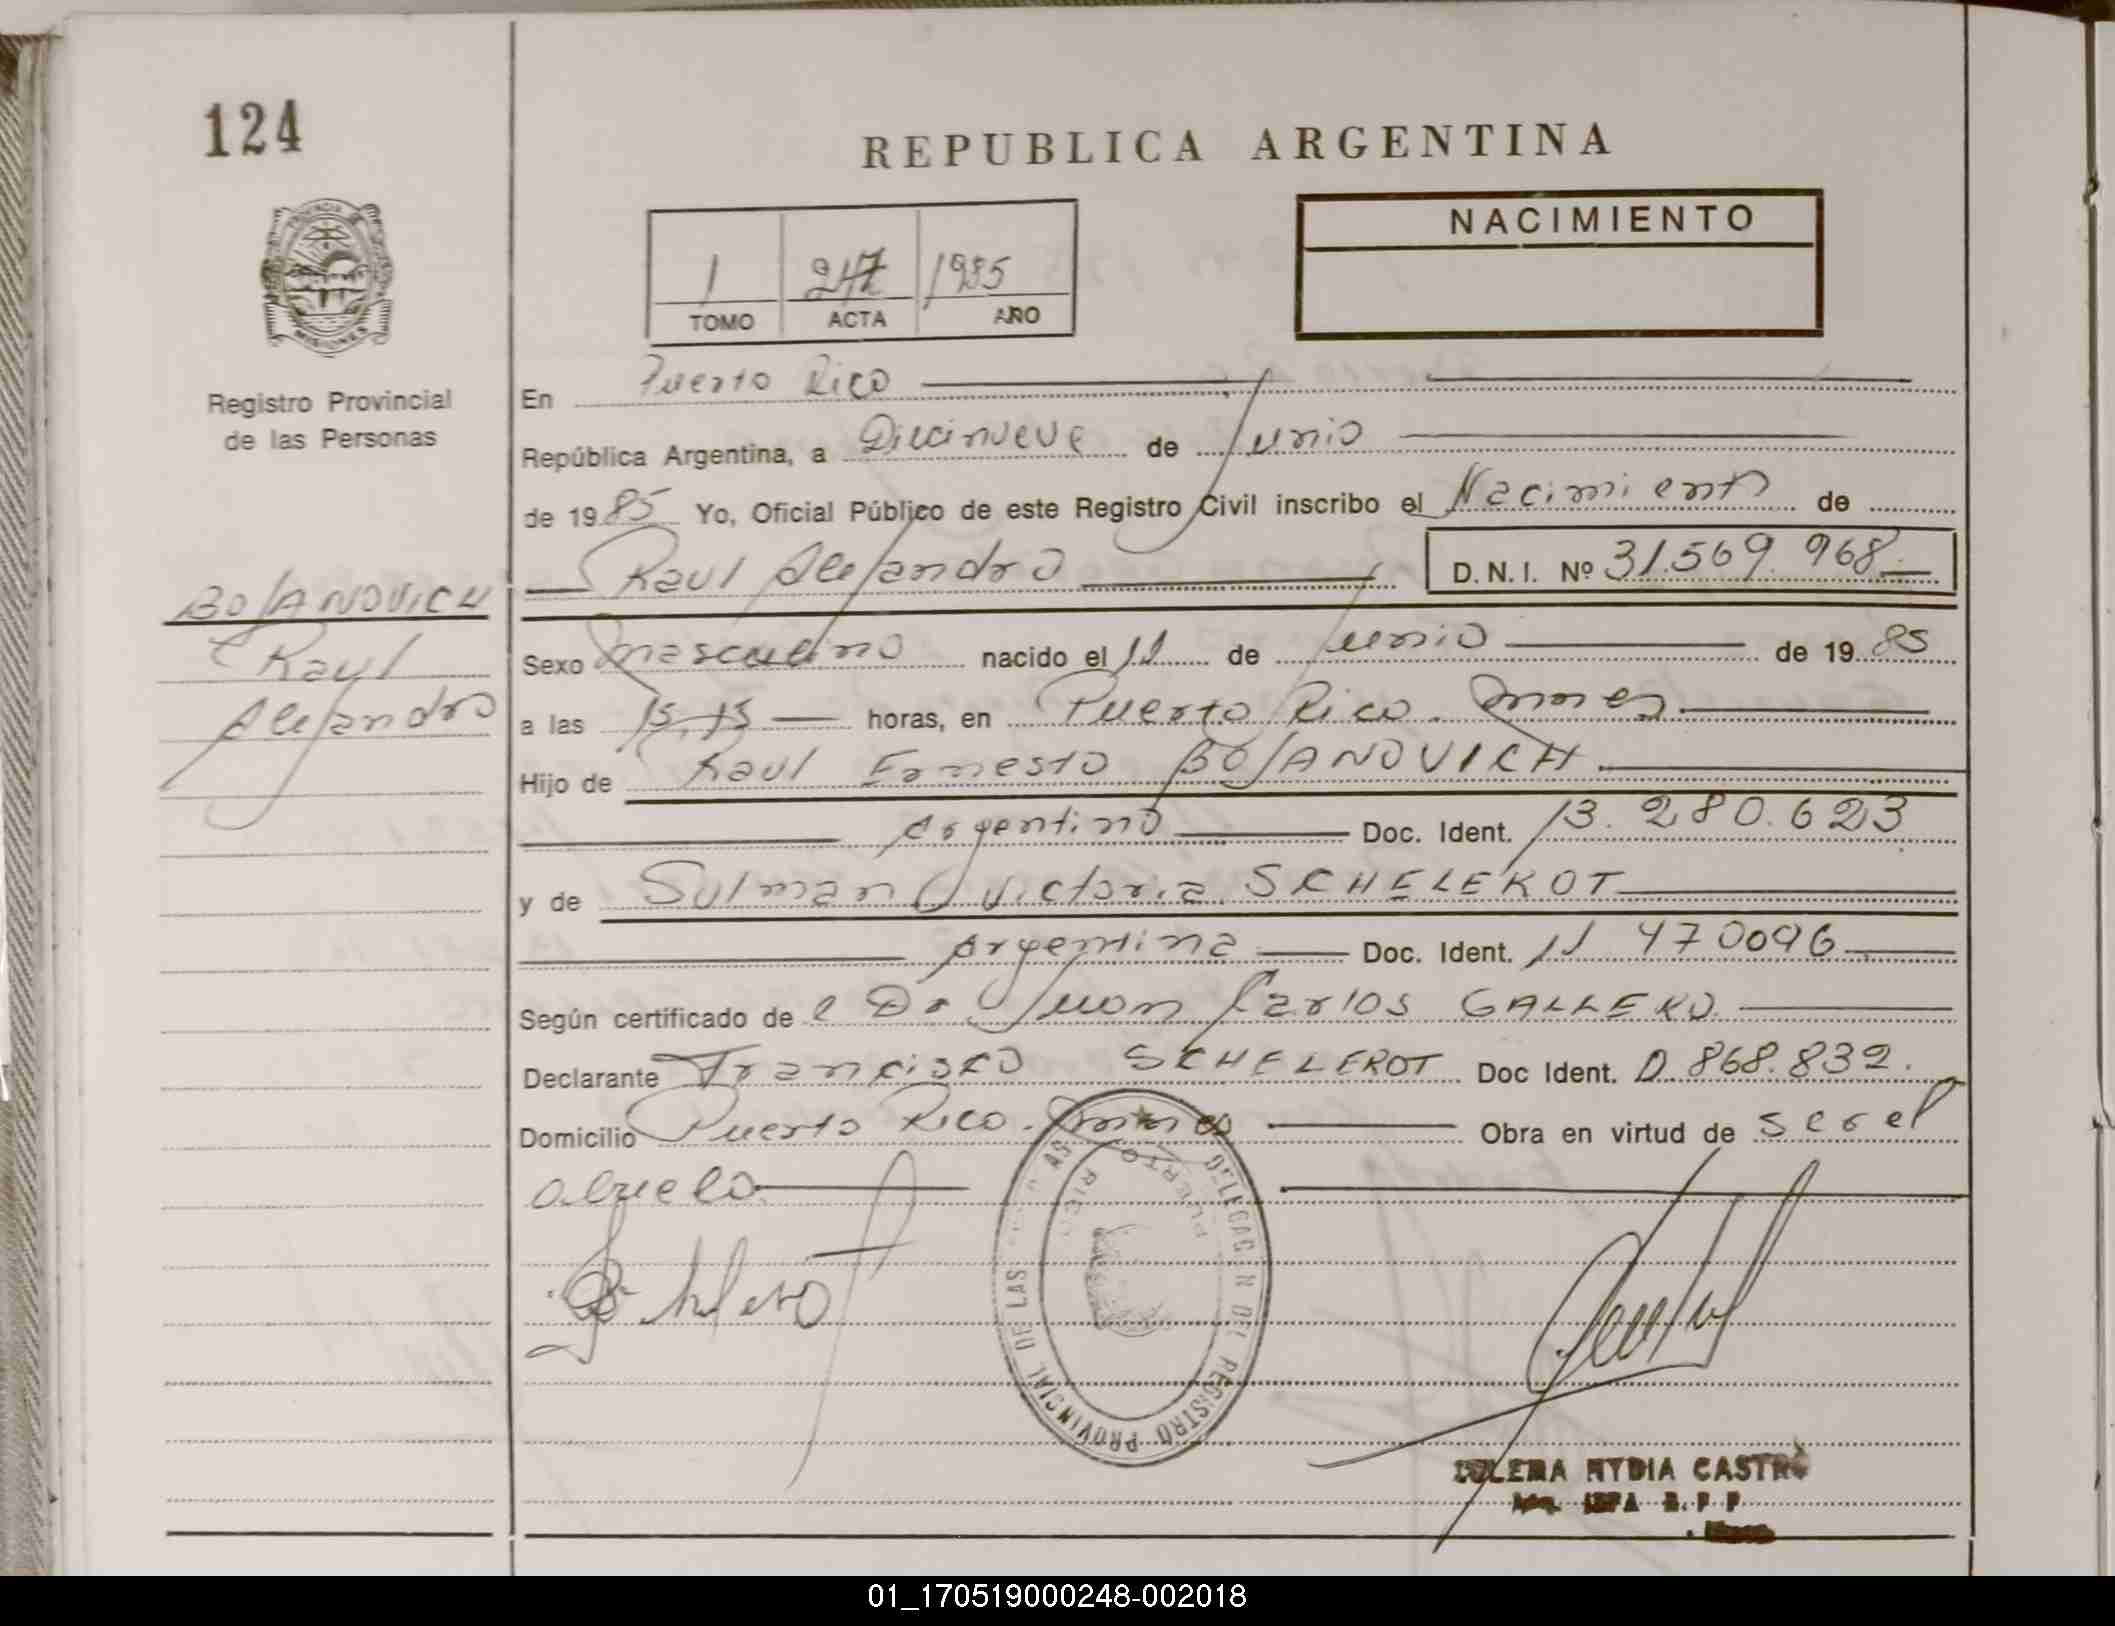 124
REPUBLICA ARGENTINA
NACIMIENTO
1 247 1985
TOMO ACTA AÑO
PROVINCIA DE MISIONES
Registro Provincial
de las Personas
En Puerto Rico
República Argentina, a Diecinueve de Junio
de 1985 Yo, Oficial Público de este Registro Civil inscribo el Nacimiento de
Raul Alejandro D.N.I. Nº 31.569.968
BOJANOVICH
Raul
Alejandro
Sexo masculino nacido el 11 de Junio de 1985
a las 15,15 horas, en Puerto Rico. Mnes
Hijo de Raul Ernesto BOJANOVICH
Argentino Doc. Ident. 13.280.623
y de Victoria SCHELEROT
Argentina Doc. Ident. 11 470096
Según certificado de el Dr Juan Carlos GALLERO
Declarante Francisco SCHELEROT Doc Ident. D 868.832.
Domicilio Puerto Rico. Mnes Obra en virtud de ser el
abuelo.
DELEGACION DEL REGISTRO PROVINCIAL DE LAS
PUERTO RICO
NYDIA CASTRO
R.P.P
01_170519000248-002018